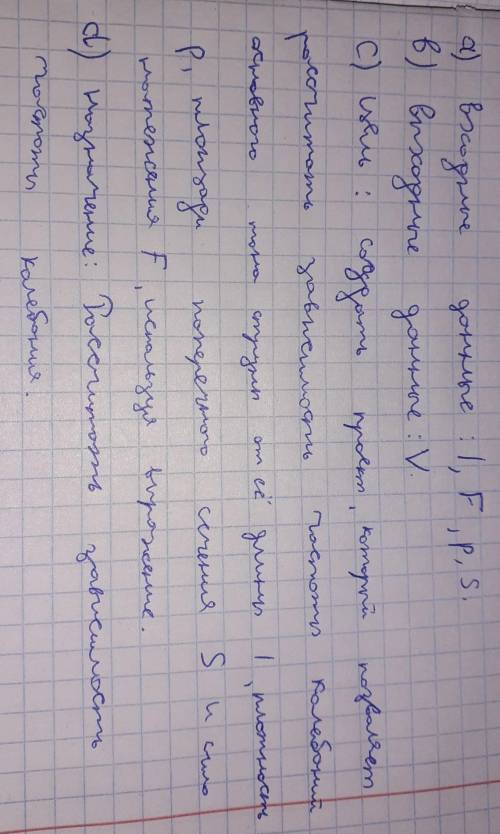 a) входные данные: l, F, p, S.
b) выходные данные: V.
c) Цель: создать проект, который позволяет
рассчитать зависимость частоты колебаний
основного тона струны от её длины l, плотность
p, площади поперечного сечения S и сила
натяжения F, используя выражение.
d) Назначение: Рассчитать зависимость
частоты колебания.